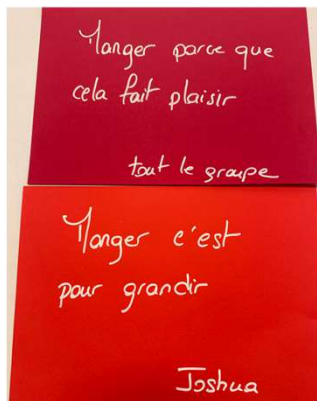 Manger parce que
cela fait plaisir
tout le groupe
Manger c'est
pour grandir
Joshua